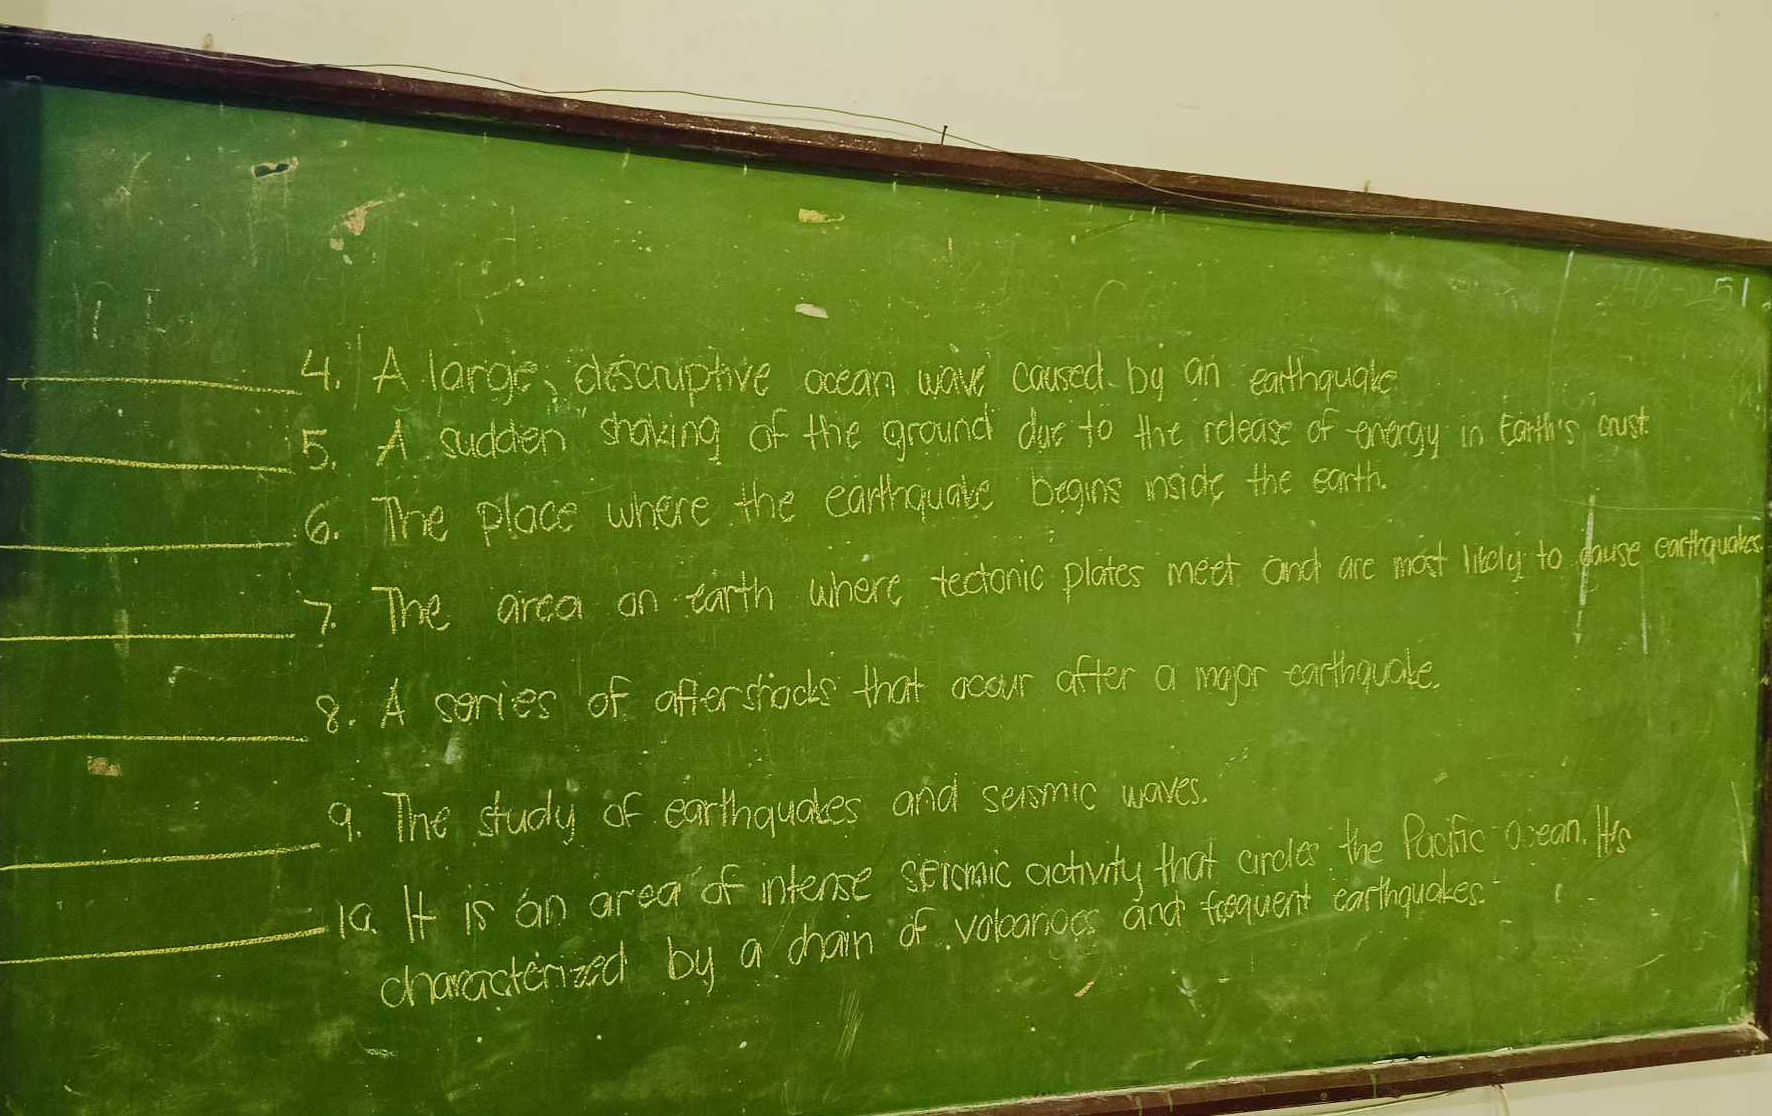 4. A large, descruptive ocean wave caused by an earthquake
5. A sudden shaking of the ground due to the release of energy in Earth's crust.
6. The place where the earthquake begins inside the earth.
7. The area on earth where tectonic plates meet and are most likely to cause earthquakes.
8. A series of aftershocks that occur after a major earthquake.
9. The study of earthquakes and seismic waves.
10. It is an area of intense seismic activity that circles the Pacific ocean. It's
characterized by a chain of volcanoes and frequent earthquakes.